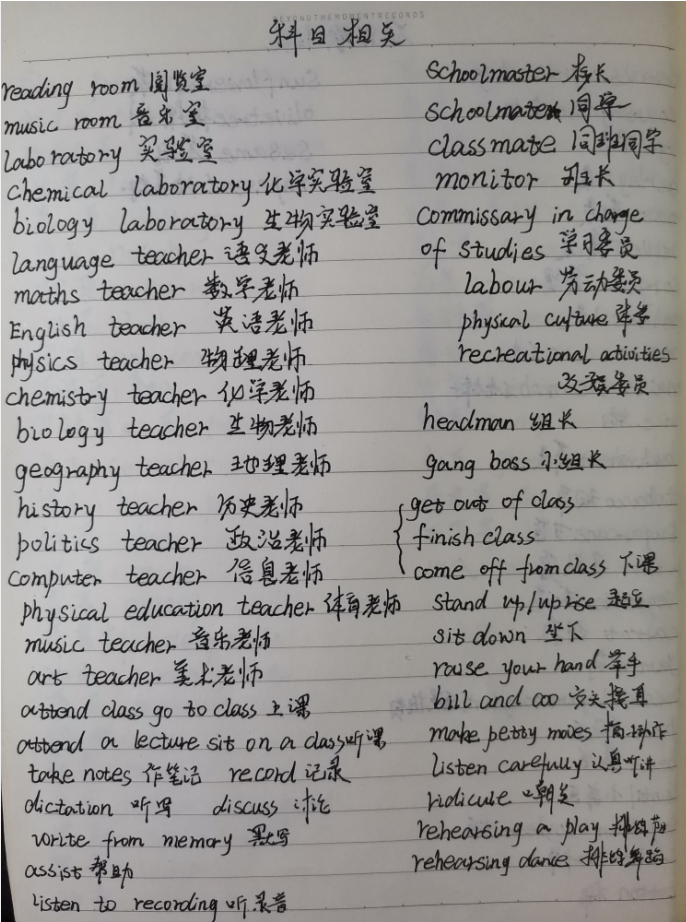 BEYONDTHEMOMENTRECORDS
科目相关
reading room 阅览室
music room 音乐室
laboratory 实验室
chemical laboratory 化学实验室
biology laboratory 生物实验室
language teacher 语文老师
maths teacher 数学老师
English teacher 英语老师
physics teacher 物理老师
chemistry teacher 化学老师
biology teacher 生物老师
geography teacher 地理老师
history teacher 历史老师
politics teacher 政治老师
computer teacher 信息老师
physical education teacher 体育老师
music teacher 音乐老师
art teacher 美术老师
attend class go to class 上课
attend a lecture sit on a class 听课
take notes 作笔记 record 记录
dictation 听写 discuss 讨论
write from memory 默写
assist 帮助
listen to recording 听录音
schoolmaster 校长
schoolmate 同学
classmate 同班同学
monitor 班长
commissary in charge
of studies 学习委员
labour 劳动委员
physical culture 体委
recreational activities
文娱委员
headman 组长
gang boss 小组长
get out of class
finish class
come off from class 下课
stand up/uprise 起立
sit down 坐下
raise your hand 举手
bill and coo 交头接耳
make petty moves 搞小动作
listen carefully 认真听讲
ridicule 嘲笑
rehearsing a play 排练节目
rehearsing dance 排练舞蹈